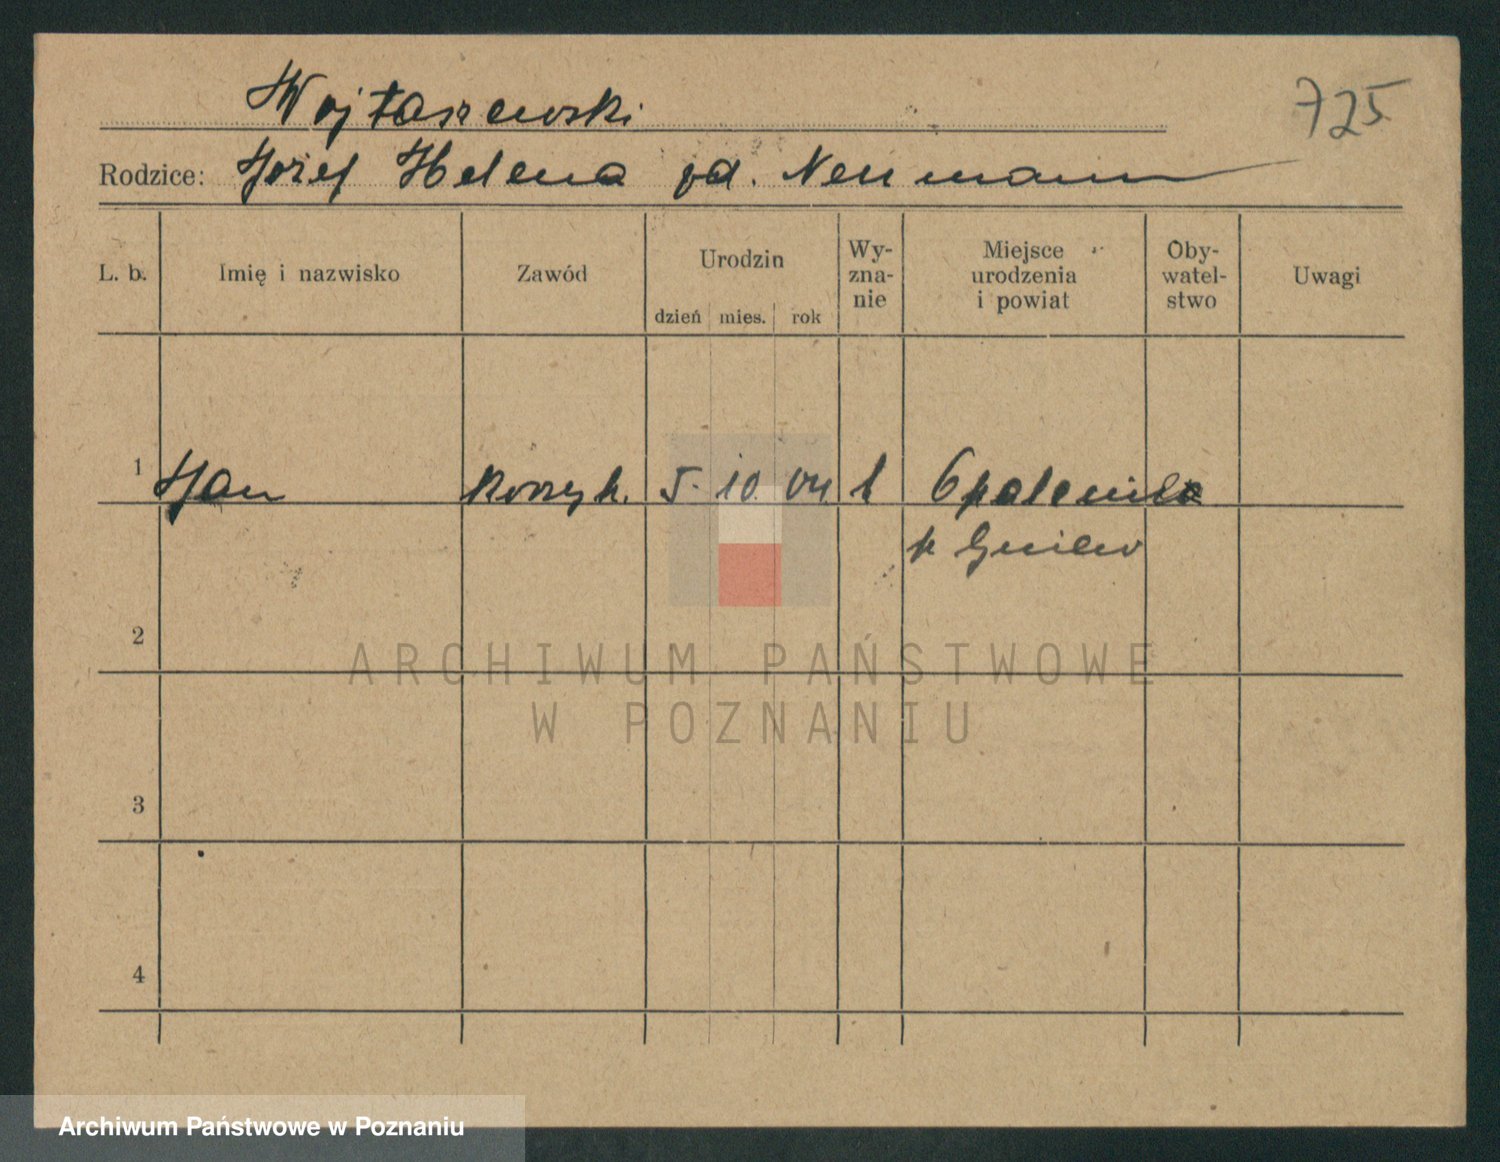 Wojtaszewski
725
Rodzice: Józef Helena zd. Neumann
L. b.
Imię i nazwisko
Zawód
Urodzin
dzień mies. rok
Wy-
zna-
nie
Miejsce
urodzenia
i powiat
Oby-
watel-
stwo
Uwagi
1 Jan 5. 10. 04 Opalenica
p
2
3
4
ARCHIWUM PAŃSTWOWE
W POZNANIU
Archiwum Państwowe w Poznaniu